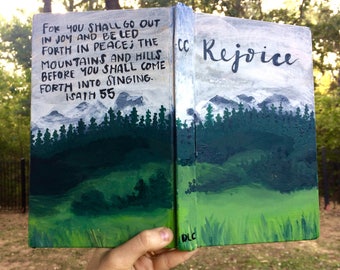 For you shall go out
in joy and be led
forth in peace; the
mountains and hills
before you shall come
forth into singing.
Isaiah 55
CC
Rejoice
DLC